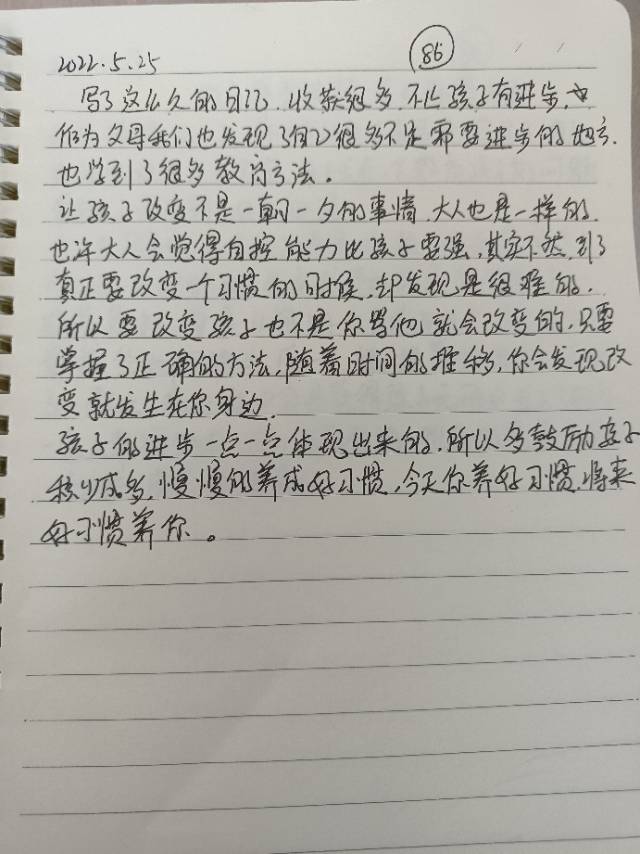 2022.5.25 86
写了这么久的日记,收获很多,不止孩子有进步,
作为父母我们也发现了自己很多不足需要进步的地方.
也学到了很多教育方法。
让孩子改变不是一朝一夕的事情,大人也是一样的.
也许大人会觉得自控能力比孩子要强,其实不然,到了
真正要改变一个习惯的时候,却发现是很难的.
所以要改变孩子也不是你骂他就会改变的,只要
掌握了正确的方法,随着时间的推移,你会发现改
变就发生在你身边.
孩子的进步一点一点体现出来的.所以多鼓励孩子
积少成多,慢慢的养成好习惯,今天你养好习惯,将来
好习惯养你。